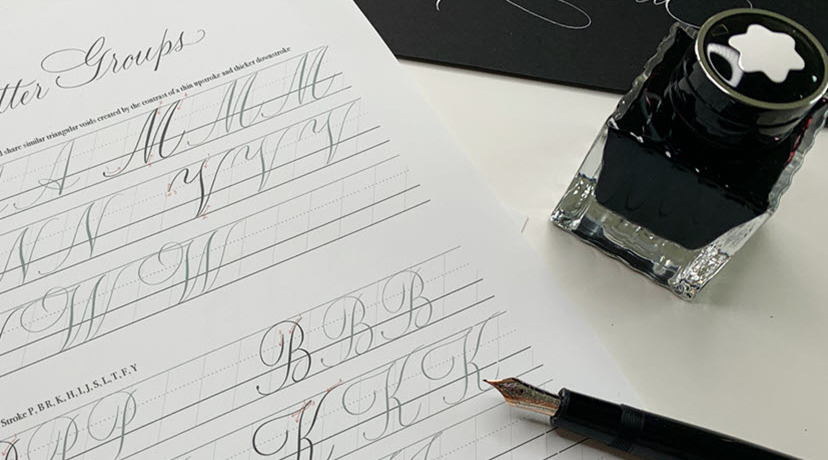 Groups
share similar triangular voids created by the contrast of a thin upstroke and thicker downstroke
A M M M
N N V V V
W W
B B B
Stroke P, B R, K, H, I, J, S, L, T, F, Y
P P K K K